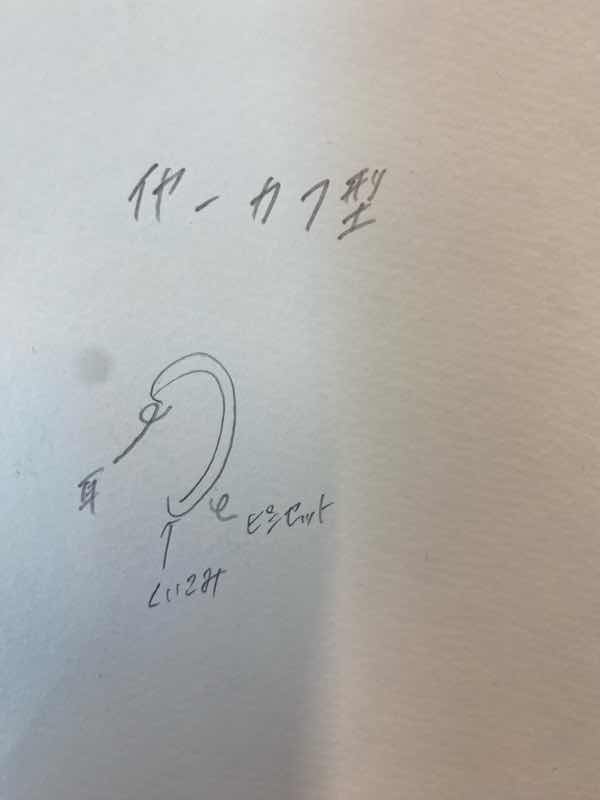 イヤーカフ型
耳
ピンセット
くいこみ